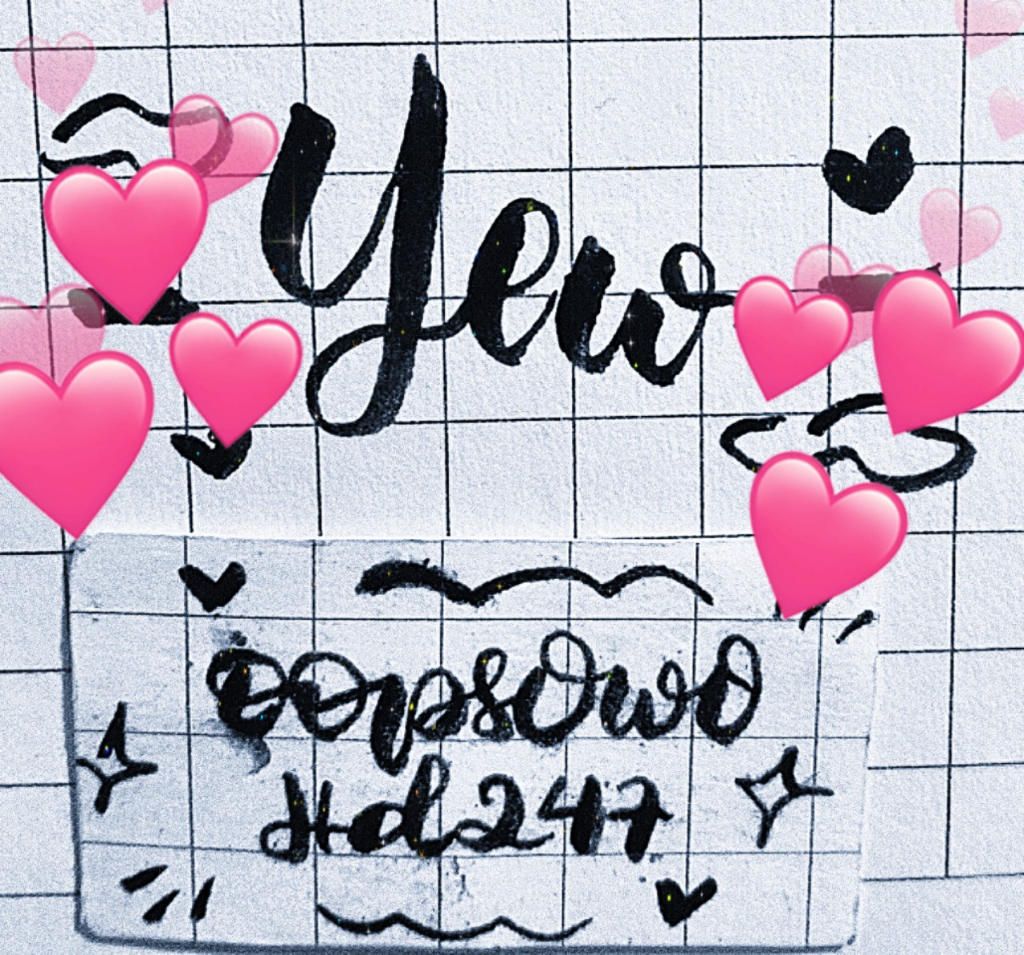 Yew
oopsOwO
Hd247